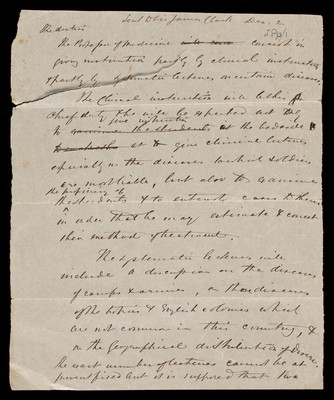 Sent Dr Sir James Clark Dec. 2
The duties
The Professor of Medicine will consist in
giving instruction partly by clinical instruction
& partly by systematic lectures on certain diseases.
The Clinical instruction will be his
Chief duty & he will be expected not only
to give instruction at the bedside
& to give clinical lectures
especially on the diseases to which soldiers
are most liable, but also to examine
the proficiency of
the students & to entrust cases to them
in order that he may estimate & correct
their method of treatment.
The systematic lectures will
include a discussion on the diseases
of camps & armies, on those diseases
of the tropics & English colonies which
are not common in this country, &
on the Geographical distribution of Disease.
The exact number of lectures cannot be at
present fixed but it is supposed that two